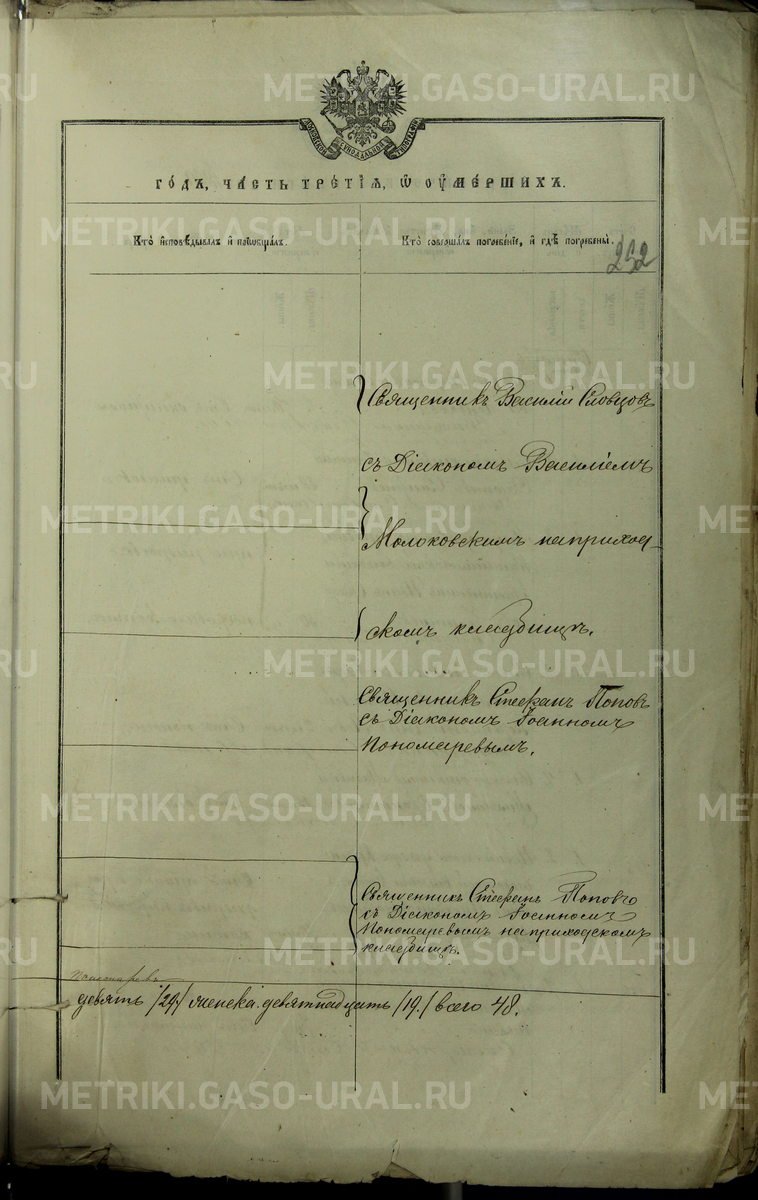 МОСКОВСКОЙ СУНОДАЛЬНОЙ ТИПОГРАФІИ
го́дъ, ча́сть тре́тїѧ, ѡ҆ ᲂу҆ме́ршихъ.
Кто̀ и҆сповѣ́дывалъ и҆ пїѡбща́лъ.
Кто̀ соверша́лъ погребе́нїе, и҆ гдѣ̀ погребены̀.
252
Священникъ Василій Словцовъ
съ Діакономъ Василіемъ
Молоковскимъ на приход-
скомъ кладбищѣ.
Священникъ Стефанъ Поповъ
съ Діакономъ Іоанномъ
Пономаревымъ.
Священникъ Стефанъ Поповъ
съ Діакономъ Іоанномъ
Пономаревымъ на приходскомъ
кладбищѣ.
девять /29/ женска девятнадцать /19./ всего 48.
METRIKI.GASO-URAL.RU